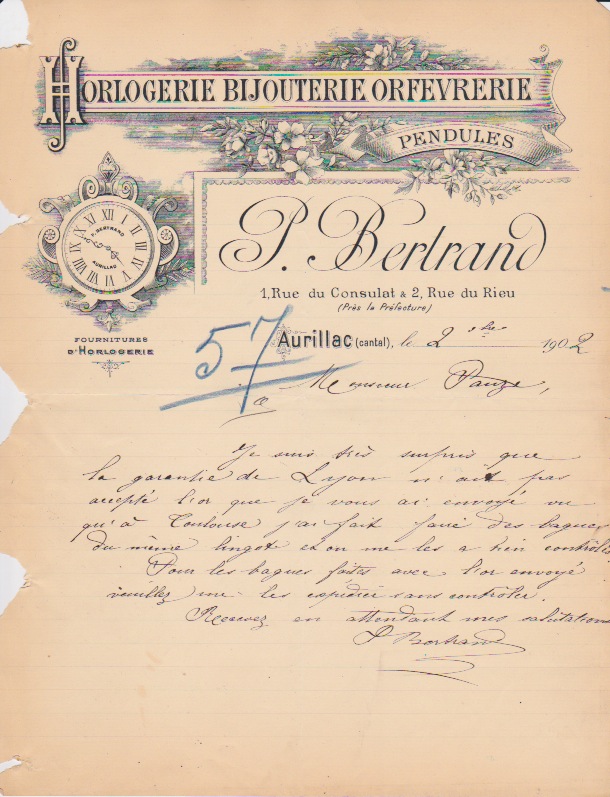 HORLOGERIE BIJOUTERIE ORFEVRERIE
PENDULES
P. BERTRAND
AURILLAC
I II III IIII V VI VII VIII IX X XI XII
FOURNITURES
D'HORLOGERIE
P. Bertrand
1, Rue du Consulat & 2, Rue du Rieu
(Près la Préfecture)
57
Aurillac (cantal), le 2 1902
Monsieur
Je suis très surpris que
la garantie de Lyon n'ait pas
accepté l'or que je vous ai envoyé vu
qu'à Toulouse j'ai fait faire des bagues
du même lingot et on me les a bien contrôlé
Pour les bagues faites avec l'or envoyé
veuillez me les expédier sans contrôler.
Recevez en attendant mes salutations
P Bertrand